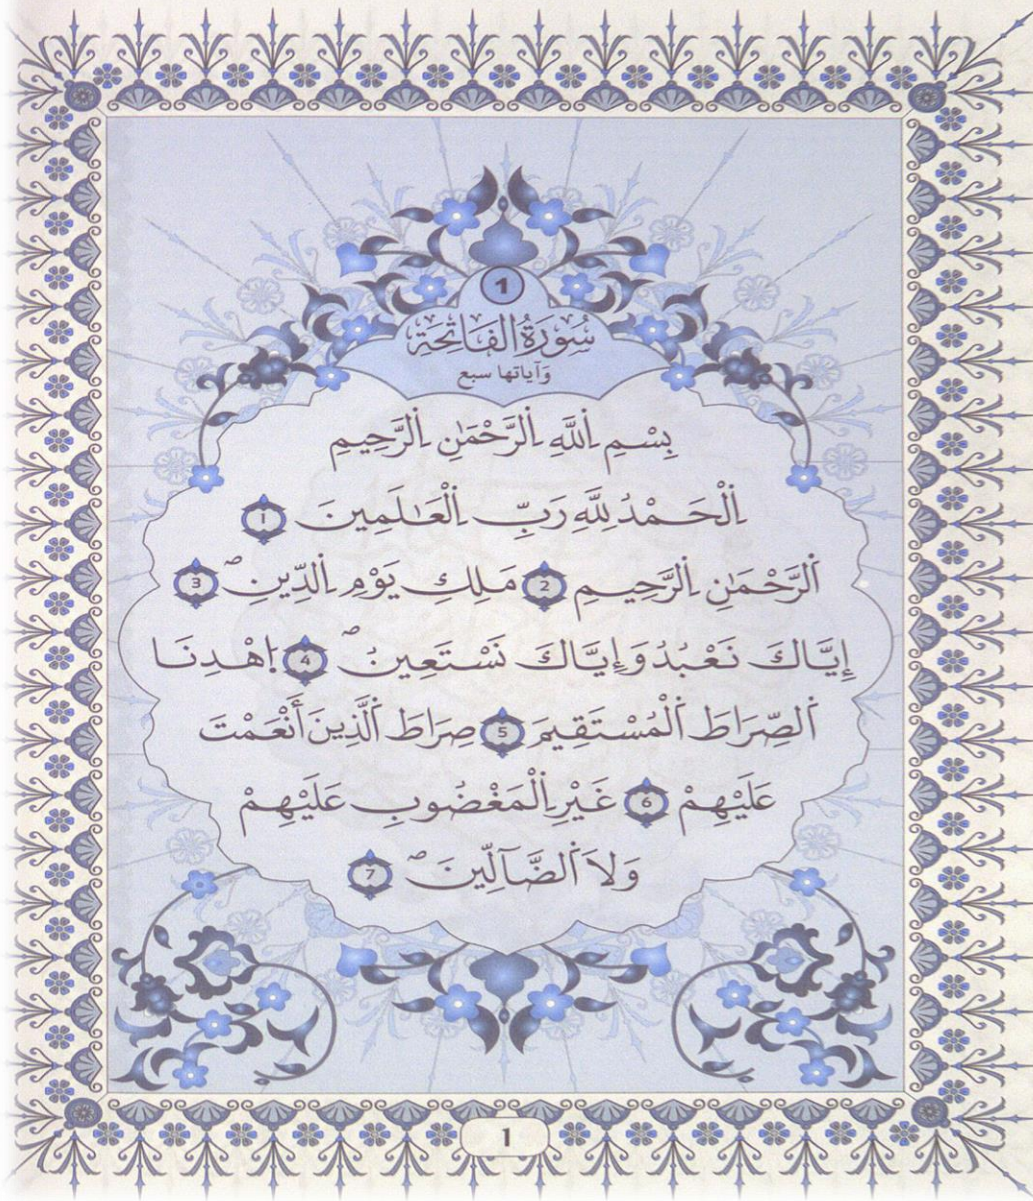 1
سُورَةُ الفَاتِحَةِ
وَآيَاتُهَا سبع
بِسْمِ اِ۬للَّهِ اِ۬لرَّحْمَٰنِ اِ۬لرَّحِيمِ
اِ۬لْحَمْدُ لِلَّهِ رَبِّ اِ۬لْعَٰلَمِينَ 1
اَ۬لرَّحْمَٰنِ اِ۬لرَّحِيمِ 2 مَلِكِ يَوْمِ اِ۬لدِّينِۖ 3
إِيَّاكَ نَعْبُدُ وَإِيَّاكَ نَسْتَعِينُۖ 4 اِ۪هْدِنَا
اَ۬لصِّرَاطَ اَ۬لْمُسْتَقِيمَ 5 صِرَاطَ اَ۬لَّذِينَ أَنْعَمْتَ
عَلَيْهِمْ 6 غَيْرِ اِ۬لْمَغْضُوبِ عَلَيْهِمْ
وَلَا اَ۬لضَّآلِّينَۖ 7
1